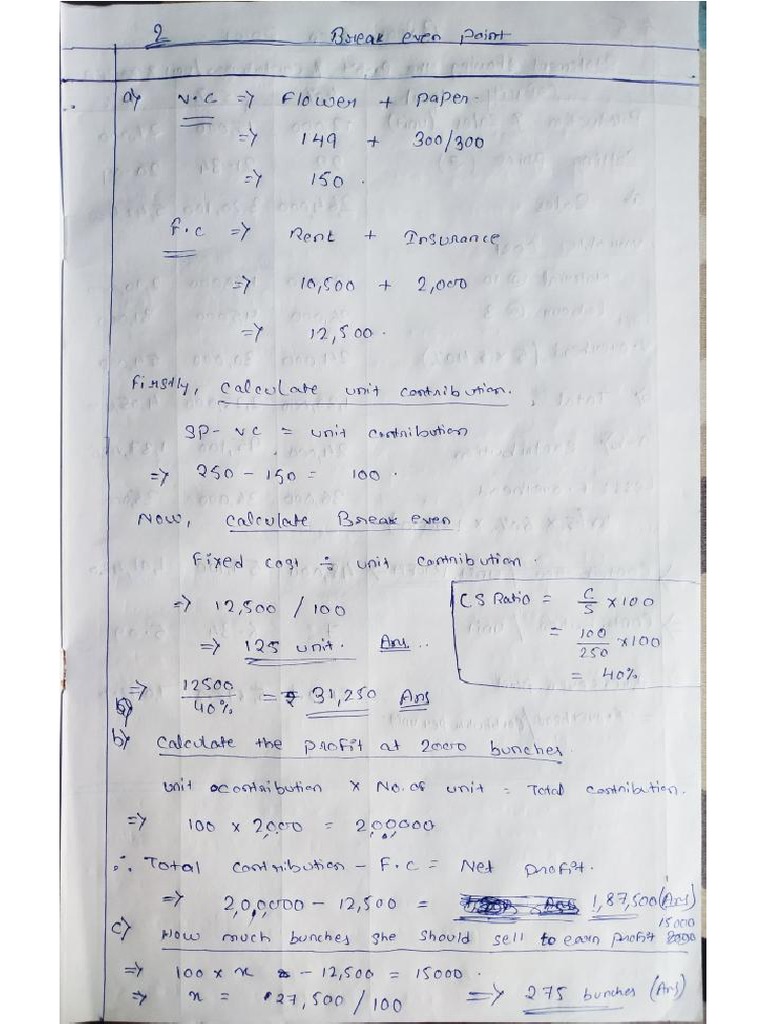 2 Break even point
a) V.C => Flower + paper.
=> 149 + 300/300
=> 150.
F.C => Rent + Insurance
=> 10,500 + 2,000
=> 12,500.
Firstly, calculate unit contribution.
SP - VC = unit contribution
=> 250 - 150 = 100.
Now, calculate Break even
Fixed cost ÷ unit contribution.
=> 12,500 / 100
=> 125 unit. Ans..
CS Ratio = C/S × 100
= 100/250 × 100
= 40%
=> 12500/40% = ₹ 31,250 Ans
b) calculate the profit at 2000 bunches.
unit contribution × No. of unit = Total contribution.
=> 100 × 2,000 = 2,00000
∴ Total contribution - F.C = Net profit.
=> 2,00,000 - 12,500 = 1,87,500 (Ans)
c) How much bunches she should sell to earn profit 15000
=> 100 × x - 12,500 = 15000.
=> x = 27,500 / 100 => 275 bunches (Ans)